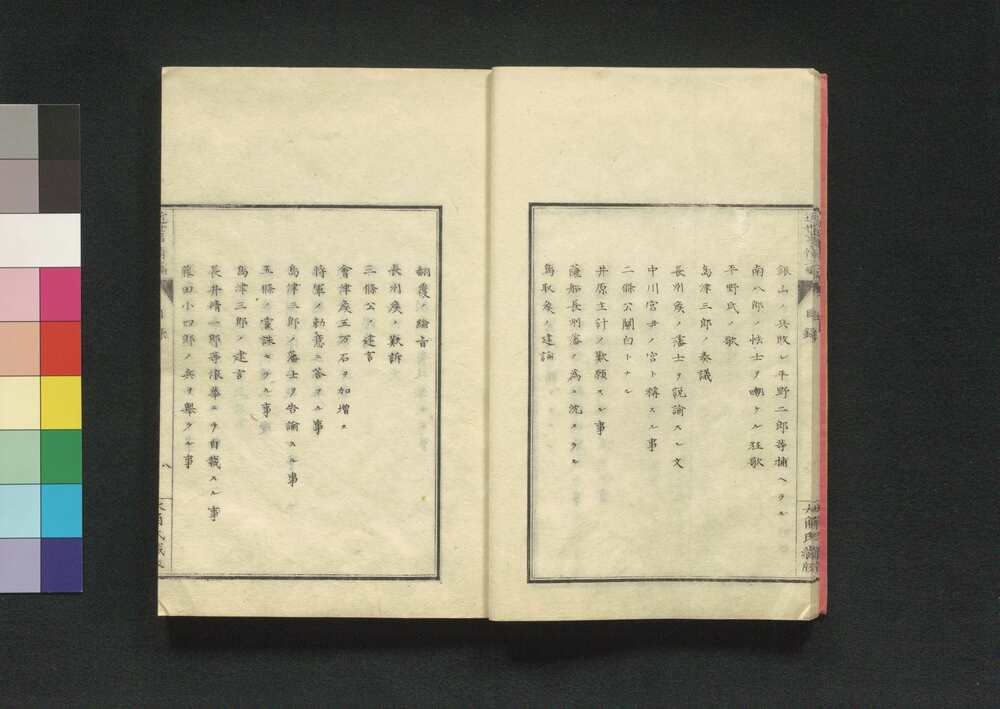 銀山ノ兵敗レ平野二郎等捕ヘラル
南八郎ノ怯士ヲ嘲ケル狂歌
平野氏ノ歌
島津三郎ノ奏議
長州矦ノ藩士ヲ説諭スル文
中川宮尹ノ宮ト稱スル事
二條公關白トナル
井原主計ノ歎願スル事
薩船長州藩ノ為ニ沈メラル
鳥取矦ノ建論
目録
飜覆ノ綸旨
長州矦ノ歎訴
三條公ノ建言
會津矦五万石ヲ加増ス
將軍ノ勅意ニ答ヘラル事
島津三郎ノ藩士ヲ告諭スル事
五條ノ靈誅セラル事
島津三郎ノ建言
長井精一郎等浪華ニテ自裁スル事
藤田小四郎ノ兵ヲ擧クル事
八